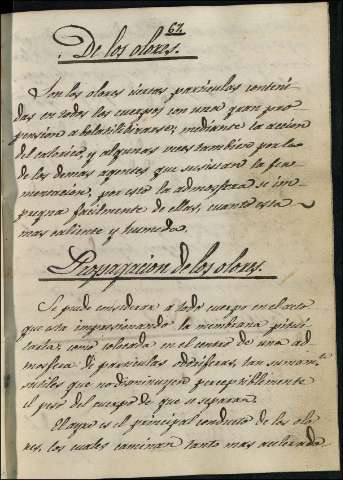 67.
De los olores.
Son los olores ciertas particulas conteni-
das en todos los cuerpos con una gran pro-
pension a bolatilizarse, mediante la accion
del calorico, y algunas veces tambien por la
de los demas agentes que suscitan la fer-
mentacion, por esto la admosfera se im-
pregna facilmente de ellas, cuanto esta
mas caliente y humeda.
Propagacion de los olores.
Se puede considerar a todo cuerpo en el acto
que esta impresionando la membrana pitui-
taria, como colocado en el centro de una ad-
mosfera de particulas odoriferas, tan sumam.te
sutiles que no disminuyen perceptiblemente
el peso del cuerpo de que se separan.
El ayre es el principal conducto de los olo-
res, los cuales caminan tanto mas